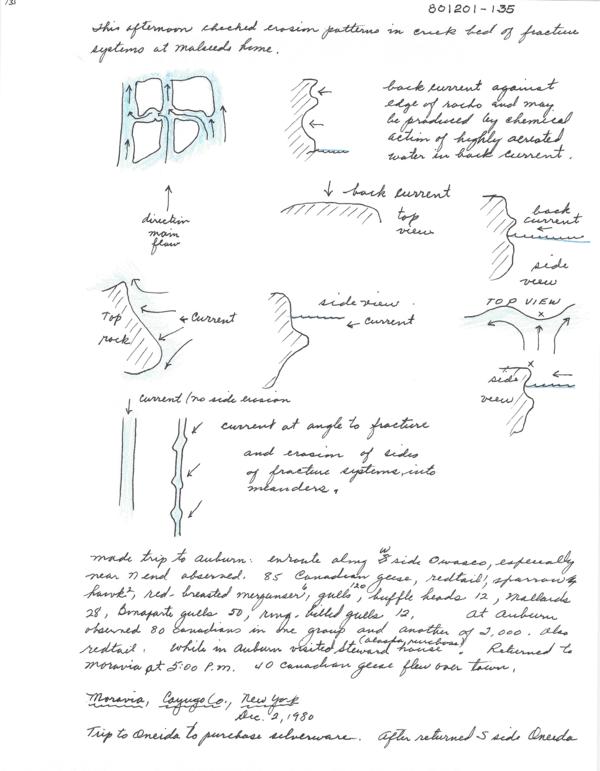 133
801201-135
This afternoon checked erosion patterns in creek bed of fracture
systems at malseeds home.
back current against
edge of rocks and may
be produced by chemical
action of highly aerated
water in back current.
direction
main
flow
back current
top
view
back
current
side
view
Top
rock
current
side view
current
TOP VIEW
x
x
side
view
current/no side erosion
current at angle to fracture
and erosion of sides
of fracture systems, into
meanders.
made trip to Auburn: enroute along W side Owasco, especially
near N end observed. 85 Canadian geese, redtail 1, sparrow
hawk 2, red-breasted merganser 6, gulls 120, buffle heads 12, Mallards
28, Bonaparte gulls 50, ring-billed gulls 12. At Auburn
observed 80 Canadians in one group and another of 2,000. Also
redtail. While in Auburn visited Steward house (Alaska purchase). Returned to
Moravia at 5:00 P.M. 40 Canadian geese flew over town.
Moravia, Cayuga Co., New York
Dec. 2, 1980
Trip to Oneida to purchase silverware. After returned S side Oneida